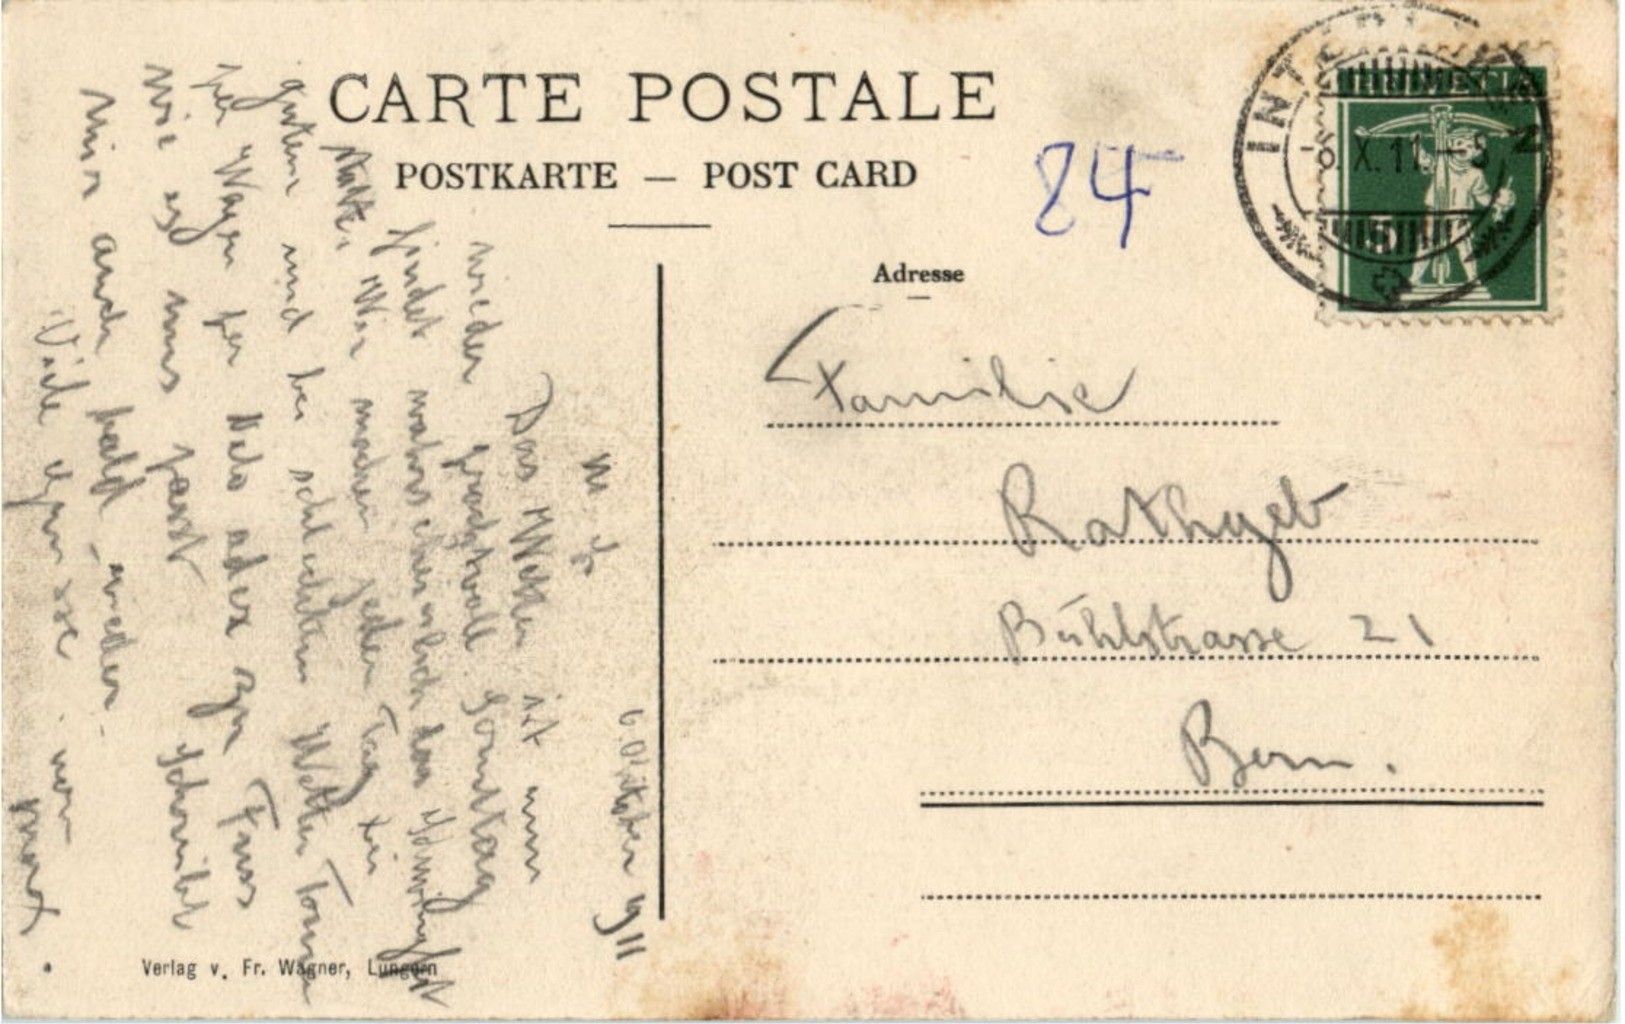 CARTE POSTALE
POSTKARTE — POST CARD
84
INTERLAKEN
6.X.11.
HELVETIA
Adresse
Familie
Rathgeb
Bühlstrasse 21
Bern.
6. Oktober 1911
M. L.
Das Wetter ist nun
wieder prachtvoll Sonntag
findet wahrscheinlich das Schwingfest
statt. Wir machen jeden Tag bei
gutem und bei schlechtem Wetter Touren
per Wagen per Velo oder zu Fuss
wie es uns passt. Schreibt
mir auch bald wieder.
Viele Grüsse von
Max
Verlag v. Fr. Wagner, Lungern